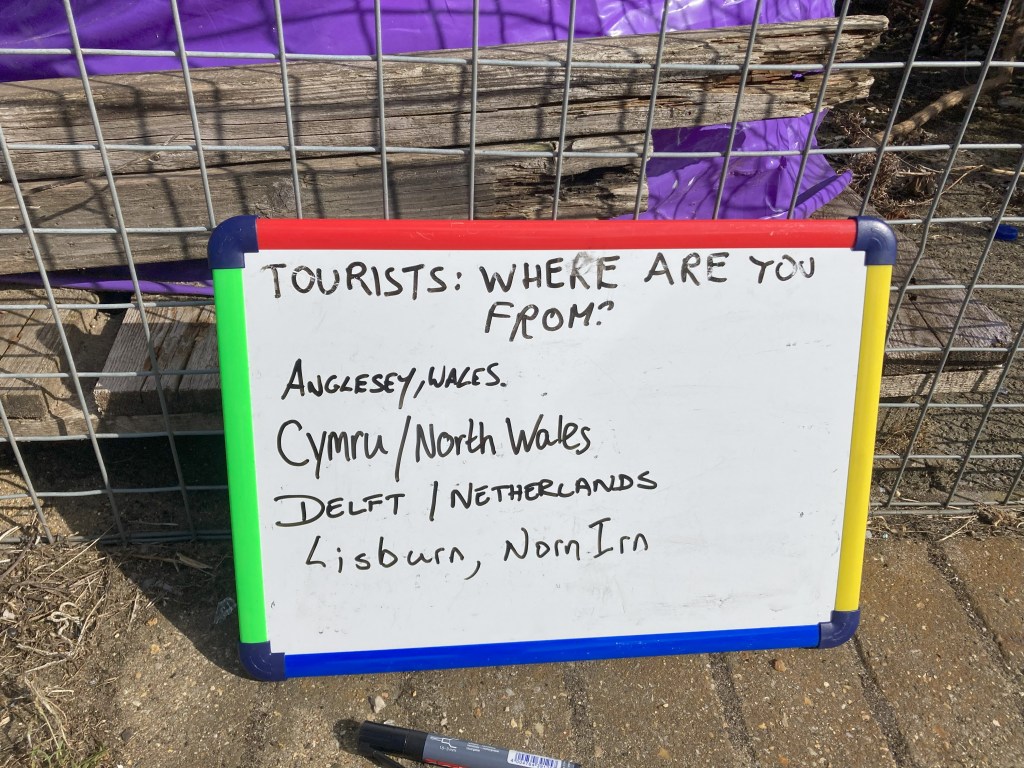 TOURISTS: WHERE ARE YOU
FROM?
ANGLESEY, WALES.
Cymru / North Wales
DELFT / NETHERLANDS
Lisburn, Norn Irn